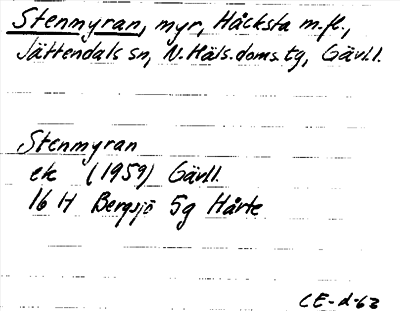 Stenmyran, myr, Håcksta m.fl.,
Jättendals sn, N. Häls. doms. tg, Gävll.
Stenmyran
ek (1959) Gävll.
16 H Bergsjö 5g Hårte
CE-d-62